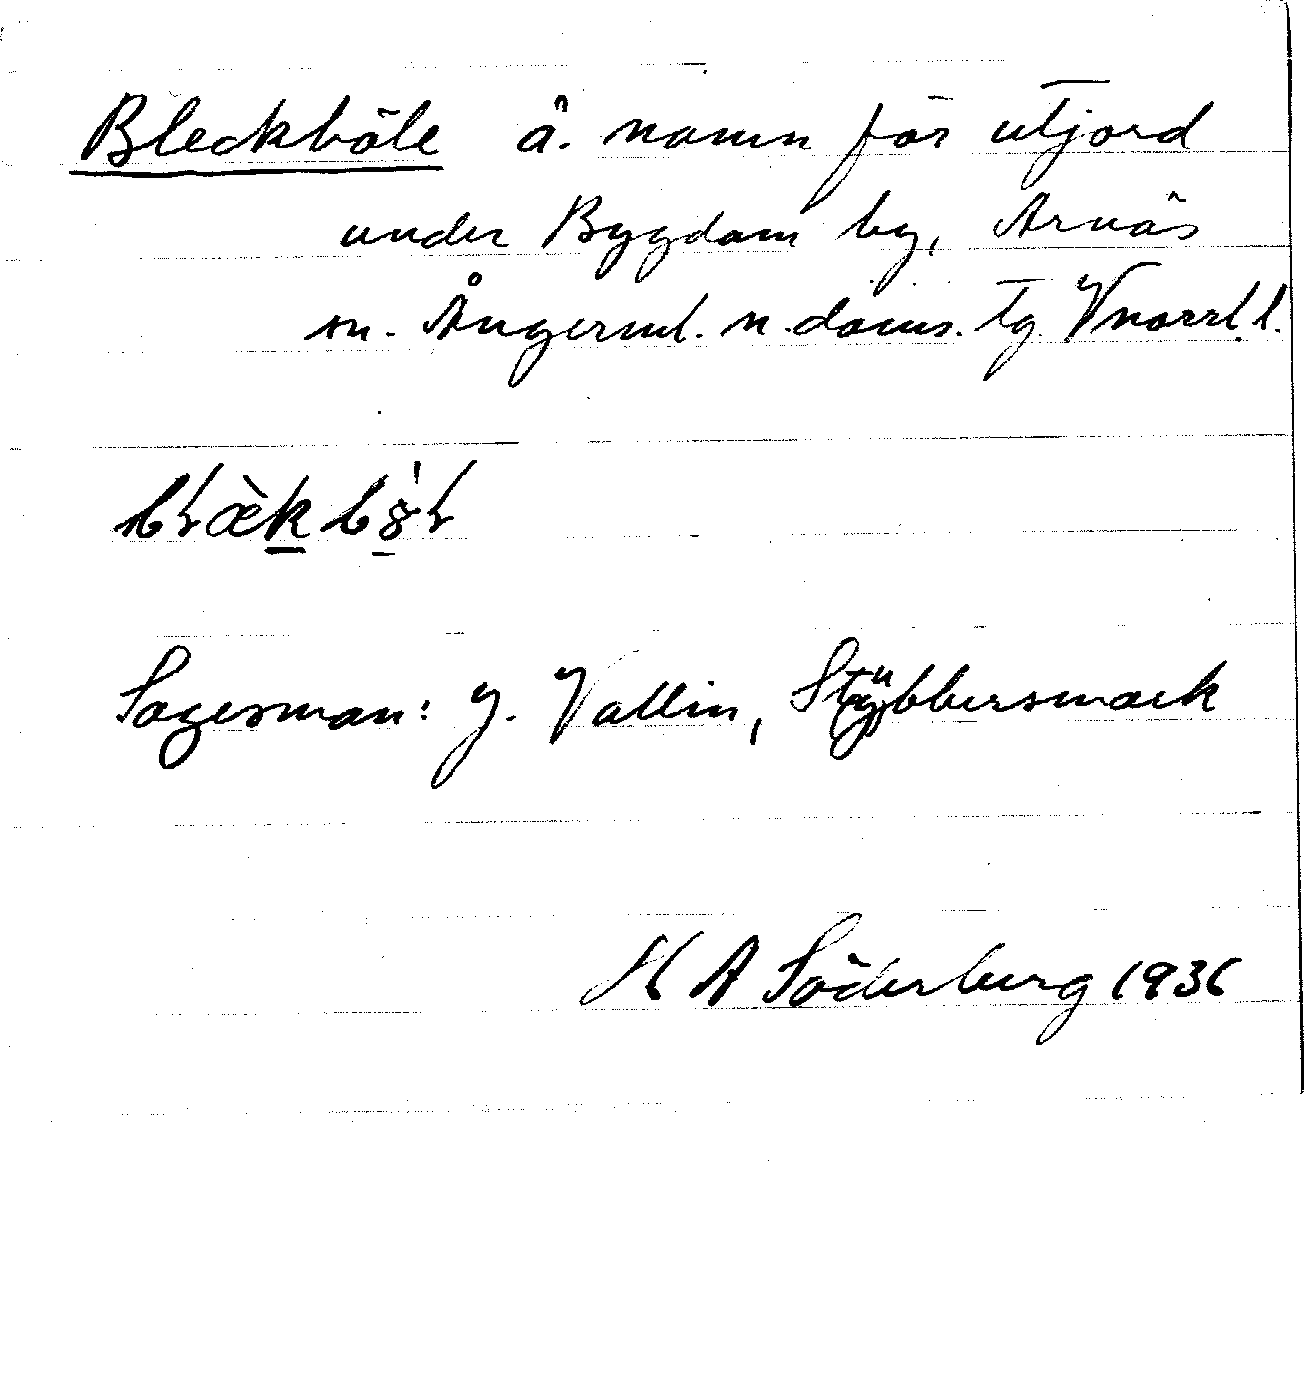 Bleckböle ä. namn för utjord
under Bygdom by, Arnäs
sn. Ångerml. n. doms. tg Vnorrl. l.
Sagesman: J. Vallin, Stybbersmark
H A Söderberg 1936